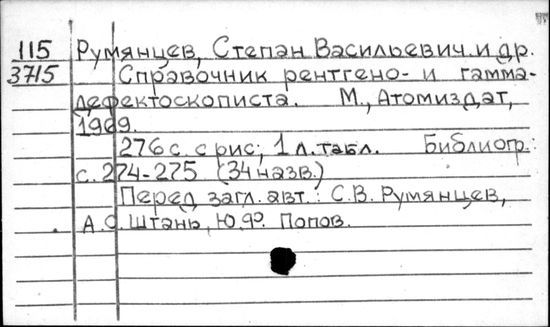 115 Румянцев, Степан Васильевич и др.
3715 Справочник рентгено- и гамма-
дефектоскописта. М., Атомиздат,
1969.
276 с. с рис; 1 л. табл. Библиогр.:
с. 274-275 (34 назв.)
Перед загл. авт.: С.В. Румянцев,
А.С. Штань, Ю.Ф. Попов.